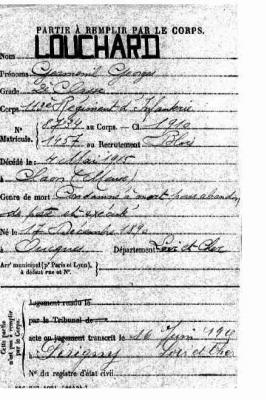 PARTIE À REMPLIR PAR LE CORPS.
Nom LOUCHARD
Prénoms Georges
Grade 2e Classe
Corps 113e Régiment d'Infanterie
N° Matricule. 8734 au Corps. — Cl 1910
1457 au Recrutement Blois
Décédé le 4 Mai 1915
à
Genre de mort Condamné à mort pour abandon
de poste et exécuté
Né le 17 Décembre 1890
à Département Loir et Cher
Arr' municipal (pr Paris et Lyon), à défaut rue et N°.
Cette partie n'est pas à remplir par le Corps.
Jugement rendu le
par le Tribunal de
acte ou jugement transcrit le 16 Juin
à Loir et Cher
N° du registre d'état civil